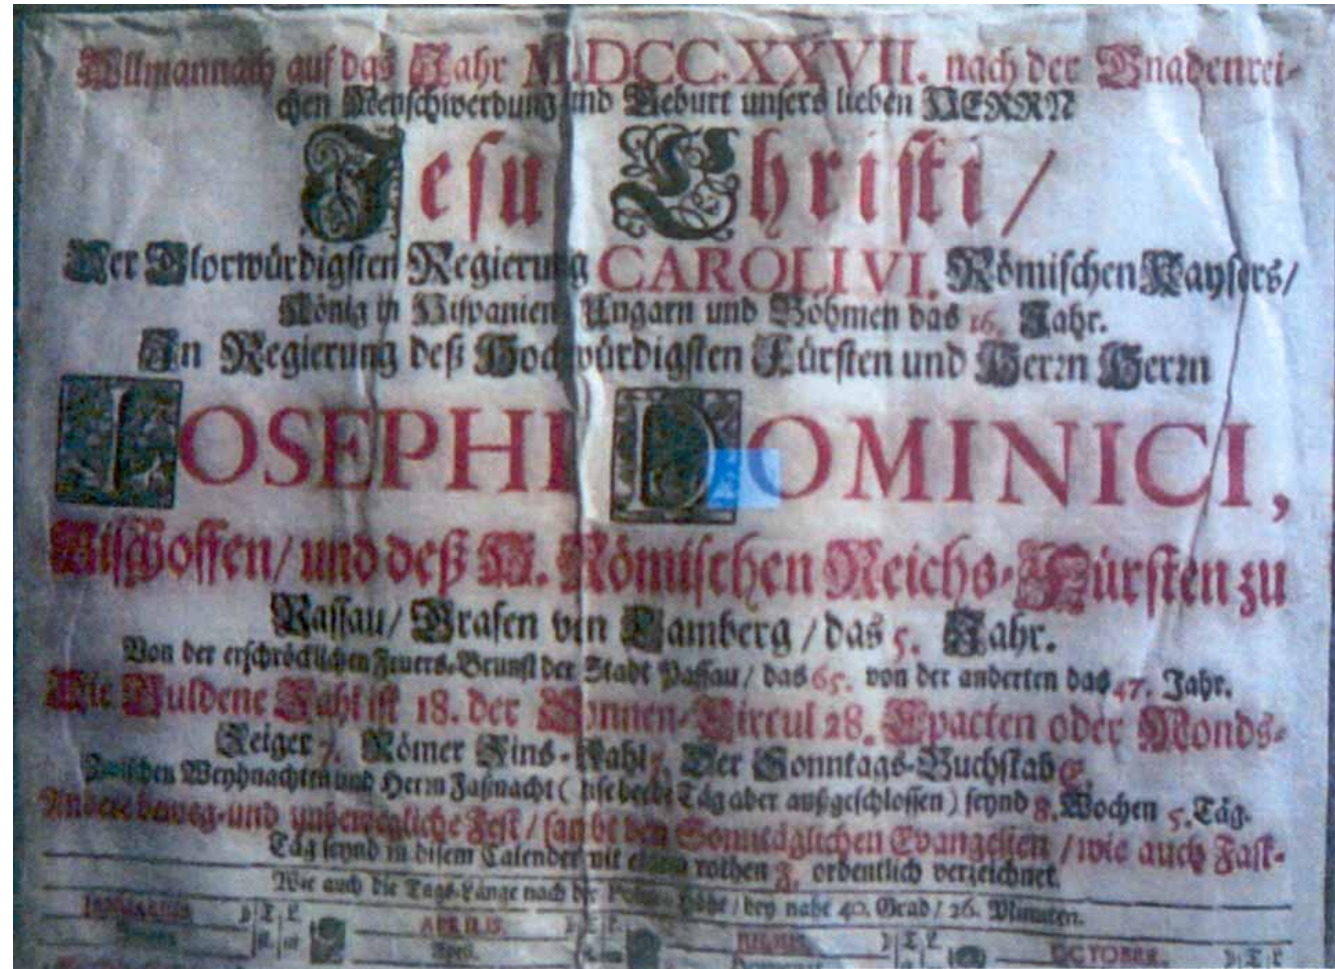 Allmannach auf das Jahr M.DCC.XXVII. nach der Gnadenrei-
chen Menschwerdung und Geburt unsers lieben HERRN
Jesu Christi /
Der Glorwürdigsten Regierung CAROLI VI. Römischen Kaysers /
König in Hispanien Ungarn und Böhmen das 16. Jahr.
In Regierung deß Hochwürdigsten Fürsten und Herrn Herrn
IOSEPHI DOMINICI,
Bischoffen / und deß H. Römischen Reichs-Fürsten zu
Passau / Grafen von Lamberg / das 5. Jahr.
Von der erschröcklichen Feuers-Brunst der Stadt Passau / das 65. von der anderten das 47. Jahr.
Die Guldene Zahl ist 18. der Sonnen-Circul 28. Epacten oder Monds-
Zeiger 7. Römer Zins-Zahl 5. Der Sonntags-Buchstab E.
Zwischen Weyhnachten und Herrn Faßnacht ( dise beede Täg aber außgeschlossen ) seynd 8. Wochen 5. Täg.
Andere beweg-und unbewegliche Fest / sambt den Sonntäglichen Evangelien / wie auch Fast-
Täg seynd in disem Calender mit einem rothen F. ordentlich verzeichnet.
Wie auch die Tags-Länge nach der Höhe / bey nahe 40. Grad / 26. Minuten.
JANUARIUS APRILIS. JULIUS. OCTOBER.
April.